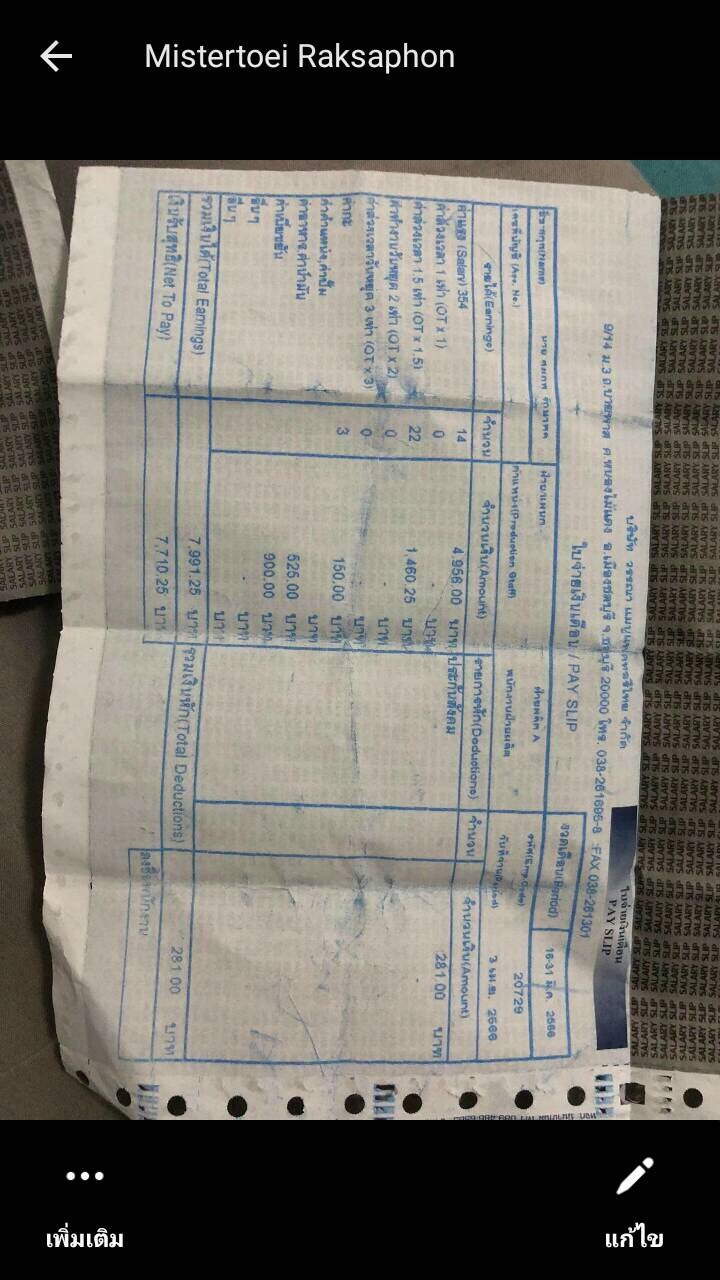 Mistertoei Raksaphon
บริษัท วรรณา แมนูแฟคทอรีไทย จำกัด
9/14 ม.3 ถ.บายพาส ต.หนองไม้แดง อ.เมืองชลบุรี จ.ชลบุรี 20000 โทร. 038-261695-8 :FAX 038-261301
ใบจ่ายเงินเดือน / PAY SLIP
ใบจ่ายเงินเดือน
PAY SLIP
ชื่อ-สกุล(Name) นาย
ฝ่าย/แผนก ฝ่ายผลิต A
งวดเดือน(Period) 16-31 มี.ค. 2566
เลขที่บัญชี (Acc. No.)
ตำแหน่ง(Production Staff) พนักงานฝ่ายผลิต
20729
3 เม.ย. 2566
รายได้(Earnings) จำนวน จำนวนเงิน(Amount) รายการหัก(Deductions) จำนวน จำนวนเงิน(Amount)
ค่าแรง (Salary) 354 14 4,956.00 บาท ประกันสังคม 281.00 บาท
ค่าล่วงเวลา 1 เท่า (OT x 1) 0 - บาท
ค่าล่วงเวลา 1.5 เท่า (OT x 1.5) 22 1,460.25 บาท
ค่าทำงานวันหยุด 2 เท่า (OT x 2) 0 - บาท
ค่าล่วงเวลาวันหยุด 3 เท่า (OT x 3) 0 - บาท
ค่ากะ 3 150.00 บาท
ค่าตำแหน่ง,ค่าปั๊ม บาท
ค่าอาหาร,ค่าน้ำมัน 525.00 บาท
ค่าเบี้ยขยัน 900.00 บาท
อื่นๆ - บาท
อื่นๆ บาท
รวมเงินได้(Total Earnings) 7,991.25 บาท รวมเงินหัก(Total Deductions) 281.00 บาท
เงินรับสุทธิ(Net To Pay) 7,710.25 บาท
ลงชื่อพนักงาน
SALARY SLIP
เพิ่มเติม
แก้ไข